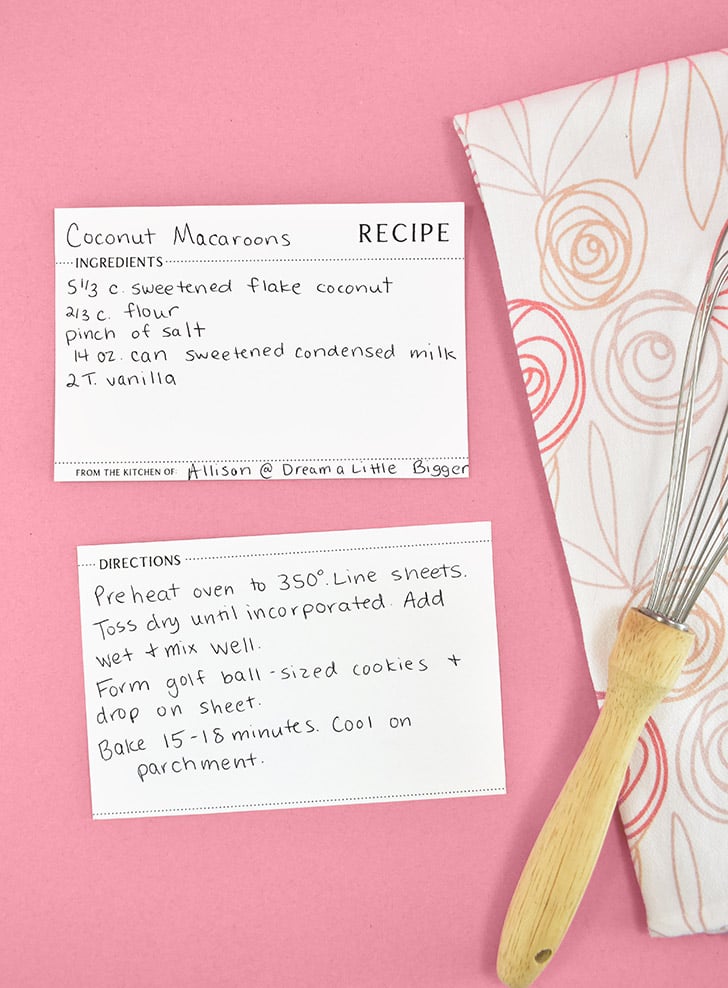 Coconut Macaroons RECIPE
INGREDIENTS
5 1/3 c. sweetened flake coconut
2/3 c. flour
pinch of salt
14 oz. can sweetened condensed milk
2 T. vanilla
FROM THE KITCHEN OF: Allison @ Dream a Little Bigger
DIRECTIONS
Preheat oven to 350°. Line sheets.
Toss dry until incorporated. Add
wet + mix well.
Form golf ball-sized cookies +
drop on sheet.
Bake 15-18 minutes. Cool on
parchment.